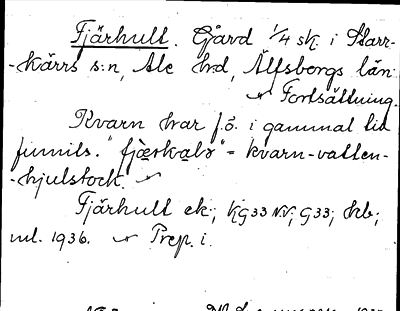 Fjärhult. Gård 1/4 sk. i Starr-
-kärrs s:n, Ale hd, Älfsborgs län
Fortsättning.
Kvarn har f.ö. i gammal tid
funnits. "fjærkals" = kvarn-vatten-
-hjulstock.
Fjärhult ek.; KG33 NV; G33; hb;
ul. 1936. Prep. i.